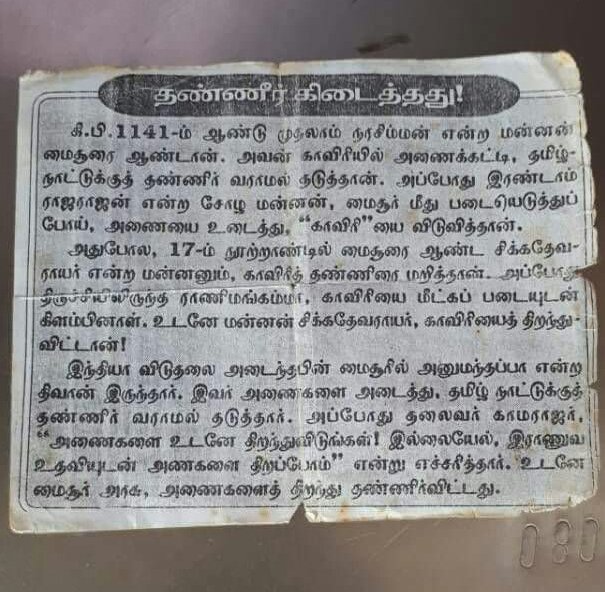 தண்ணீர் கிடைத்தது!
கி.பி.1141-ம் ஆண்டு முதலாம் நரசிம்மன் என்ற மன்னன்
மைசூரை ஆண்டான். அவன் காவிரியில் அணைக்கட்டி, தமிழ்-
நாட்டுக்குத் தண்ணீர் வராமல் தடுத்தான். அப்போது இரண்டாம்
ராஜராஜன் என்ற சோழ மன்னன், மைசூர் மீது படையெடுத்துப்
போய், அணையை உடைத்து, “காவிரி”யை விடுவித்தான்.
அதுபோல, 17-ம் நூற்றாண்டில் மைசூரை ஆண்ட சிக்கதேவ-
ராயர் என்ற மன்னனும், காவிரித் தண்ணீரை மறித்தான். அப்போது
திருச்சியிலிருந்த ராணிமங்கம்மா, காவிரியை மீட்கப் படையுடன்
கிளம்பினாள். உடனே மன்னன் சிக்கதேவராயர், காவிரியைத் திறந்து-
விட்டான்!
இந்தியா விடுதலை அடைந்தபின் மைசூரில் அனுமந்தப்பா என்ற
திவான் இருந்தார். இவர் அணைகளை அடைத்து, தமிழ் நாட்டுக்குத்
தண்ணீர் வராமல் தடுத்தார். அப்போது தலைவர் காமராஜர்,
“அணைகளை உடனே திறந்துவிடுங்கள்! இல்லையேல், இராணுவ
உதவியுடன் அணகளை திறப்போம்” என்று எச்சரித்தார். உடனே
மைசூர் அரசு, அணைகளைத் திறந்து தண்ணீர்விட்டது.